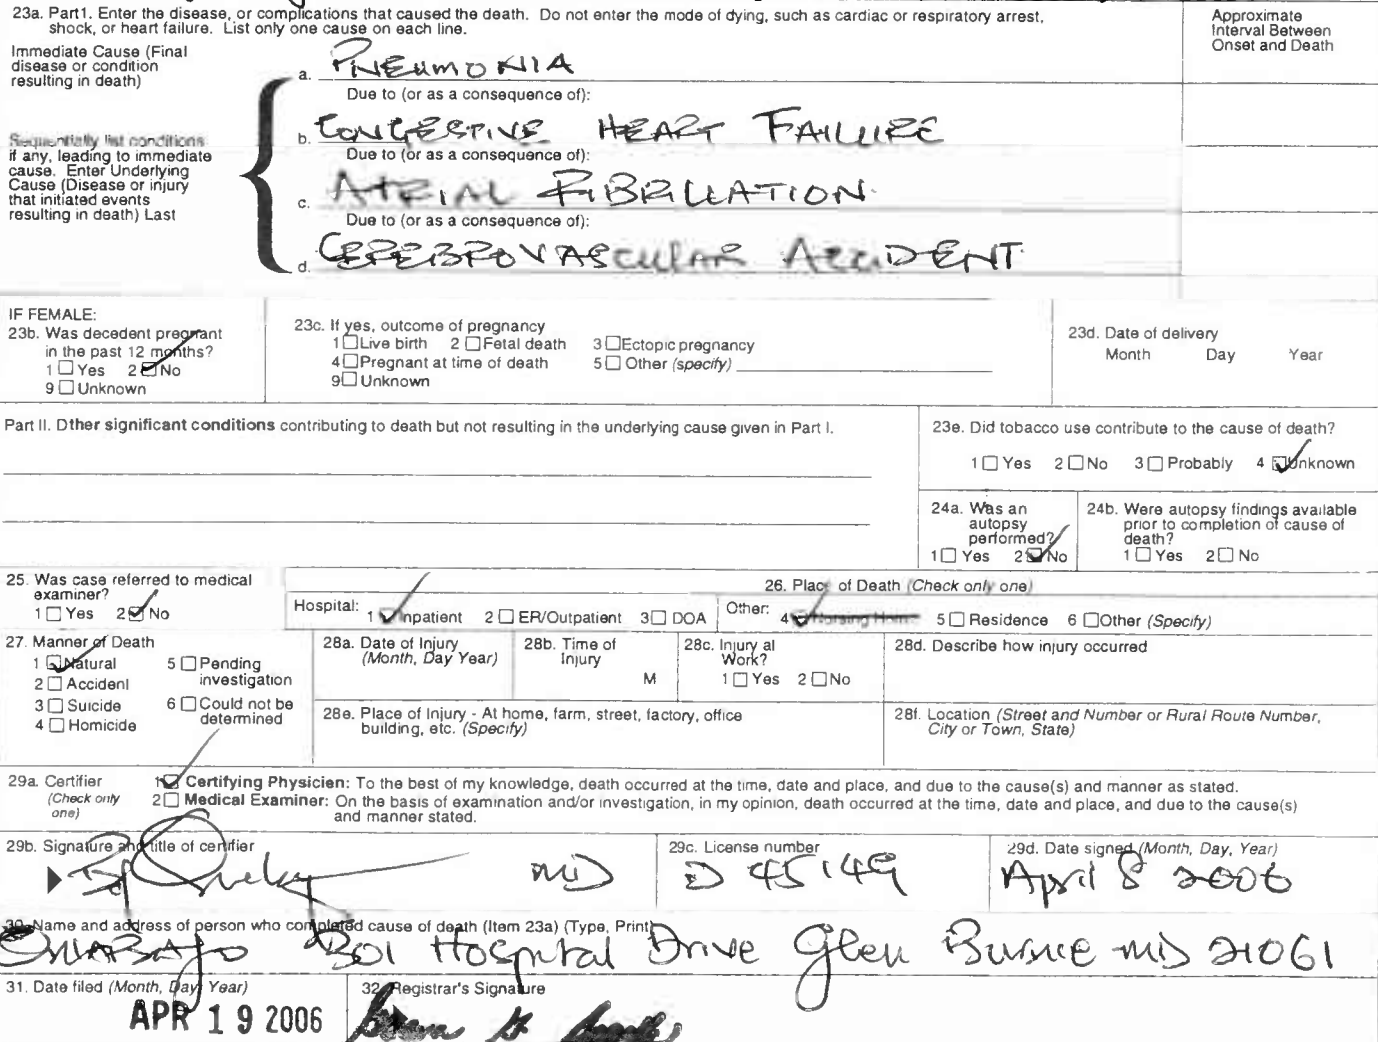 23a. Part1. Enter the disease, or complications that caused the death. Do not enter the mode of dying, such as cardiac or respiratory arrest,
shock, or heart failure. List only one cause on each line.
Approximate
Interval Between
Onset and Death
Immediate Cause (Final
disease or condition
resulting in death)
a. PNEUMONIA
Due to (or as a consequence of):
Sequentially list conditions
if any, leading to immediate
cause. Enter Underlying
Cause (Disease or injury
that initiated events
resulting in death) Last
b. CONGESTIVE HEART FAILURE
Due to (or as a consequence of):
c. ATRIAL FIBRILLATION
Due to (or as a consequence of):
d. CEREBROVASCULAR ACCIDENT
IF FEMALE:
23b. Was decedent pregnant
in the past 12 months?
1 ☐ Yes 2 ☑ No
9 ☐ Unknown
23c. If yes, outcome of pregnancy
1 ☐ Live birth 2 ☐ Fetal death 3 ☐ Ectopic pregnancy
4 ☐ Pregnant at time of death 5 ☐ Other (specify)
9 ☐ Unknown
23d. Date of delivery
Month Day Year
Part II. Other significant conditions contributing to death but not resulting in the underlying cause given in Part I.
23e. Did tobacco use contribute to the cause of death?
1 ☐ Yes 2 ☐ No 3 ☐ Probably 4 ☑ Unknown
24a. Was an
autopsy
performed?
1 ☐ Yes 2 ☑ No
24b. Were autopsy findings available
prior to completion of cause of
death?
1 ☐ Yes 2 ☐ No
25. Was case referred to medical
examiner?
1 ☐ Yes 2 ☑ No
26. Place of Death (Check only one)
Hospital: 1 ☑ Inpatient 2 ☐ ER/Outpatient 3 ☐ DOA Other: 4 ☑ Nursing Home 5 ☐ Residence 6 ☐ Other (Specify)
27. Manner of Death
1 ☑ Natural 5 ☐ Pending
investigation
2 ☐ Accident
3 ☐ Suicide 6 ☐ Could not be
determined
4 ☐ Homicide
28a. Date of Injury
(Month, Day Year)
28b. Time of
Injury
M
28c. Injury at
Work?
1 ☐ Yes 2 ☐ No
28d. Describe how injury occurred
28e. Place of Injury - At home, farm, street, factory, office
building, etc. (Specify)
28f. Location (Street and Number or Rural Route Number,
City or Town, State)
29a. Certifier
(Check only
one)
1 ☑ Certifying Physician: To the best of my knowledge, death occurred at the time, date and place, and due to the cause(s) and manner as stated.
2 ☐ Medical Examiner: On the basis of examination and/or investigation, in my opinion, death occurred at the time, date and place, and due to the cause(s)
and manner stated.
29b. Signature and title of certifier
MD
29c. License number
D 45149
29d. Date signed (Month, Day, Year)
April 8 2006
30. Name and address of person who completed cause of death (Item 23a) (Type, Print)
301 Hospital Drive Glen Burnie MD 21061
31. Date filed (Month, Day, Year)
APR 19 2006
32. Registrar's Signature